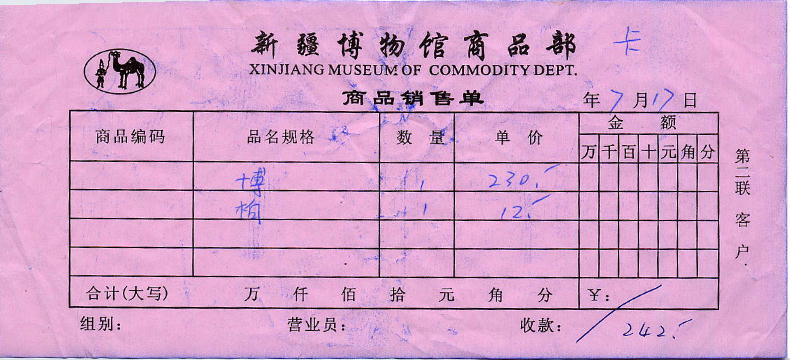 新疆博物馆商品部 卡
XINJIANG MUSEUM OF COMMODITY DEPT.
商品销售单 年7月17日
商品编码 品名规格 数量 单价 金额
万 千 百 十 元 角 分
博 1 230.-
1 12.-
合计(大写) 万 仟 佰 拾 元 角 分 ¥:
组别: 营业员: 收款: 242.-
第二联 客户